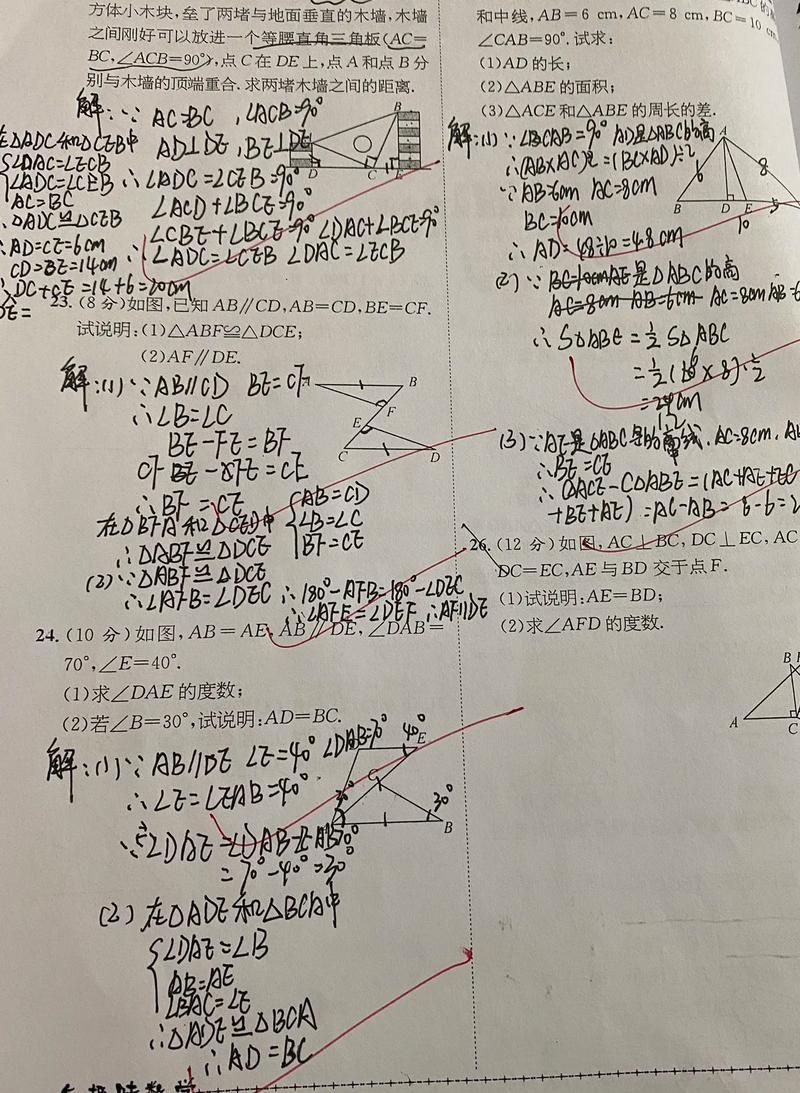 方体小木块,垒了两堵与地面垂直的木墙,木墙
之间刚好可以放进一个等腰直角三角板(AC=
BC,∠ACB=90°),点C在DE上,点A和点B分
别与木墙的顶端重合.求两堵木墙之间的距离.
解:∵ AC=BC,∠ACB=90°
AD⊥DE,BE⊥DE
∴∠ADC=∠CEB=90°
∠ACD+∠BCE=90°
∠CBE+∠BCE=90° ∠DAC+∠BCE=90°
∴∠ADC=∠CEB ∠DAC=∠ECB
在△ADC和△CEB中
∠DAC=∠ECB
∠ADC=∠CEB
AC=BC
△ADC≌△CEB
∴AD=CE=6cm
CD=BE=14cm
∴DC+CE=14+6=20cm
DE=
B
D
C
E
23.(8分)如图,已知AB∥CD,AB=CD,BE=CF.
试说明:(1)△ABF≌△DCE;
(2)AF∥DE.
解:(1)∵AB∥CD BE=CF
∴∠B=∠C
BE-FE=BF
CF-FE=CE
∴BF=CE
在△BFA和△CED中
AB=CD
∠B=∠C
BF=CE
∴△ABF≌△DCE
(2)∵△ABF≌△DCE
∴∠AFB=∠DEC ∴180°-AFB=180°-∠DEC
∴∠AFE=∠DEF ∴AF∥DE
B
F
E
C
D
24.(10分)如图,AB=AE,AB∥DE,∠DAB=
70°,∠E=40°.
(1)求∠DAE的度数;
(2)若∠B=30°,试说明:AD=BC.
解:(1)∵AB∥DE ∠E=40° ∠DAB=70°
∴∠E=∠EAB=40°
∴∠DAE=∠DAB-∠EAB
=70°-40°=30°
(2)在△ADE和△BCA中
∠DAE=∠B
AB=AE
∠BAC=∠E
∴△ADE≌△BCA
∴AD=BC
40°
E
C
30°
B
和中线,AB=6 cm,AC=8 cm,BC=10 cm,
∠CAB=90°.试求:
(1)AD的长;
(2)△ABE的面积;
(3)△ACE和△ABE的周长的差.
解:(1)∵∠BCAB=90° AD是△ABC的高
∴(AB×AC)÷2=(BC×AD)÷2
∵AB=6cm AC=8cm
BC=10cm
∴AD=48÷10=4.8cm
A
6
8
B
D
E
10
(2)∵BC=10cm AE是△ABC的高
AC=8cm AB=6cm AC=8cm AB=6
∴S△ABE=½S△ABC
=½(6×8)·½
(3)∵AE是△ABC的中线,AC=8cm,
∴BE=CE
∴C△ACE-C△ABE=(AC+AE+EC
+BE+AE)=AC-AB=8-6=2
26.(12分)如图,AC⊥BC,DC⊥EC,AC
DC=EC,AE与BD交于点F.
(1)试说明:AE=BD;
(2)求∠AFD的度数.
B
A
C